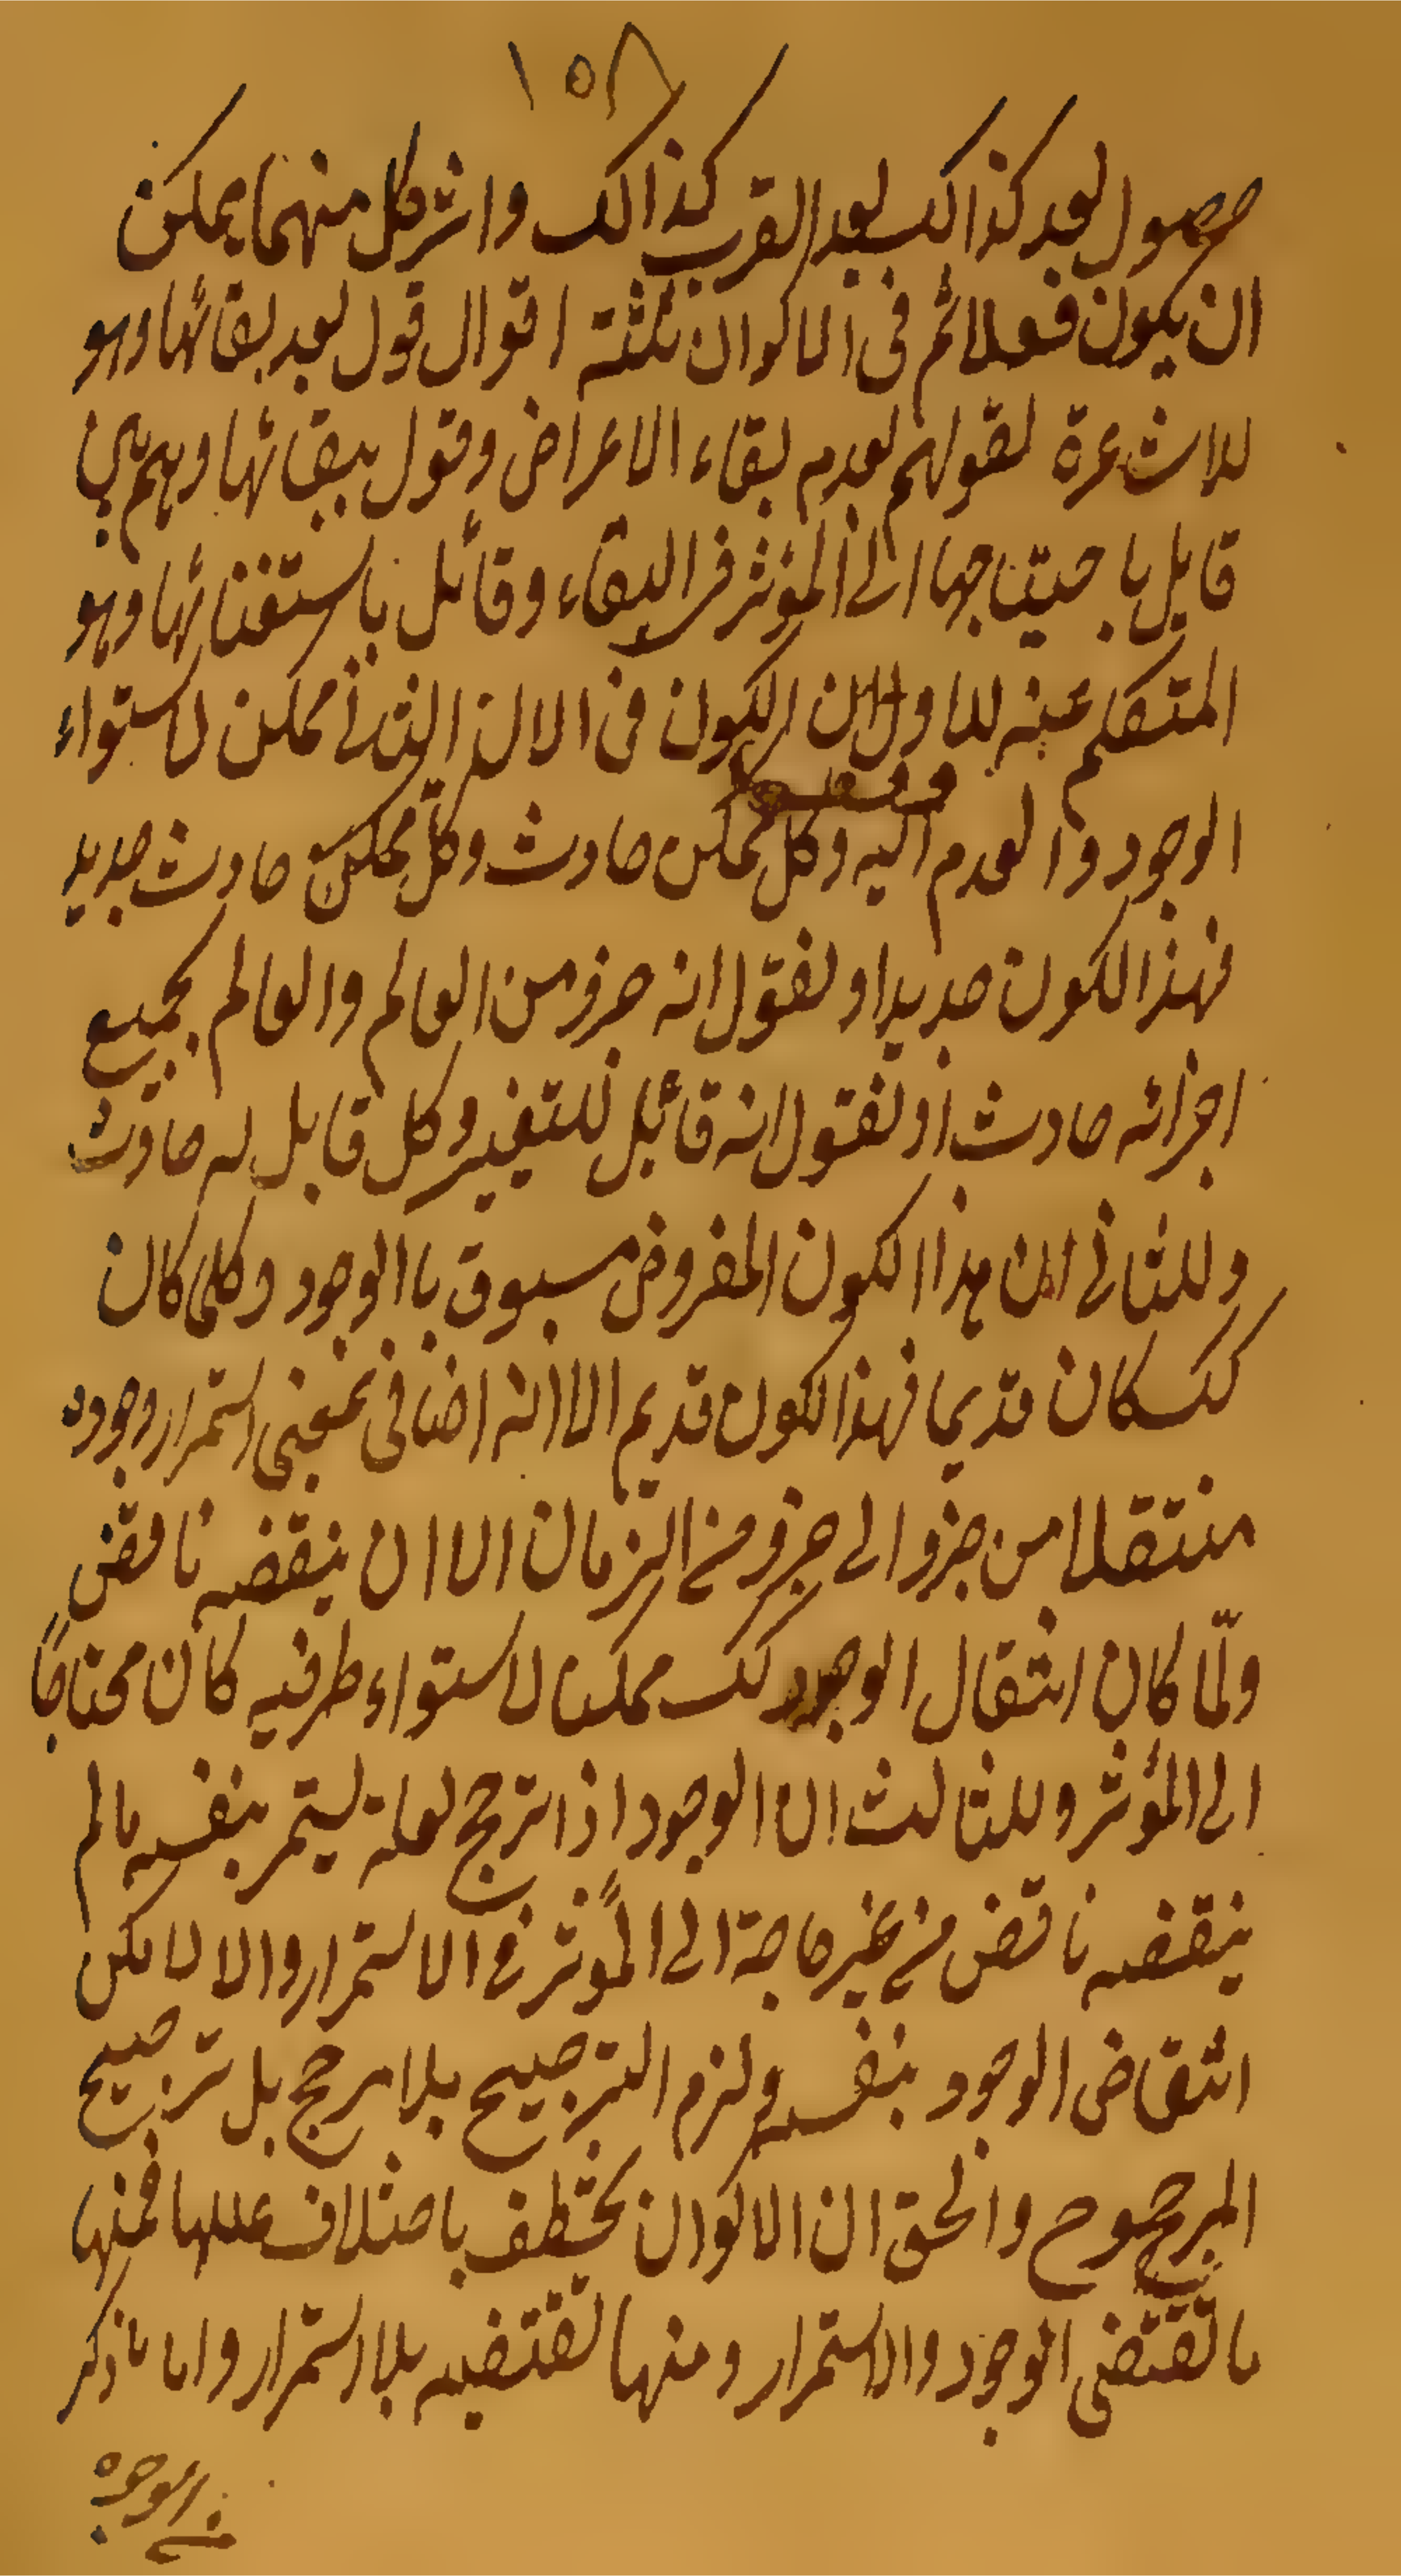 ١٥٨
حصول بعد كذالك بعد القرب كذالك واثر كل منهما يمكن
ان يكون فعلا ثم فى الاكوان ثلثة اقوال قول بعد بقائها وهو
للاشعرة لقولهم بعدم بقاء الاعراض وقول ببقائها وهم بين
قايل باحيتاجها الى المؤثر فى البقاء وقائل باستغنائها وهو
المتكلم عنه للاول ان الكون فى الان الثانى ممكن لاستواء
الوجود والعدم اليه وكل ممكن حادث وكل ممكن حادث جديد
فهذا الكون جديد او نقول انه جزو من العالم والعالم بجميع
اجزائه حادث او نقول انه قائل للتغير وكل قابل له حادث
وللثانى ان هذا الكون المفروض مسبوق باالوجود وكلما كان
كك كان قديما فهذا الكون قديم الا انه اضافى بمعنى استمرار وجوده
منتقلا من جزو الى جزو من الزمان الا ان ينقضه ناقض
ولمّا كان انتقال الوجود كك ممكنا لاستواء طرفيه كان محتاجاً
الى المؤثر وللثالث ان الوجود اذا ترجح لعلة يستمر بنفسه مالم
ينقضه ناقض من غير حاجة الى المؤثر فى الاستمرار والا لامكن
انتقاض الوجود بنفسه ولزم الترجيح بلا مرجح بل ترجيح
المرجوح والحق ان الاكوان تختلف باختلاف عللها فمنها
ما تقتضى الوجود والاستمرار ومنها تقتضيه بلا استمرار واما ما ذكر
من الوجوه